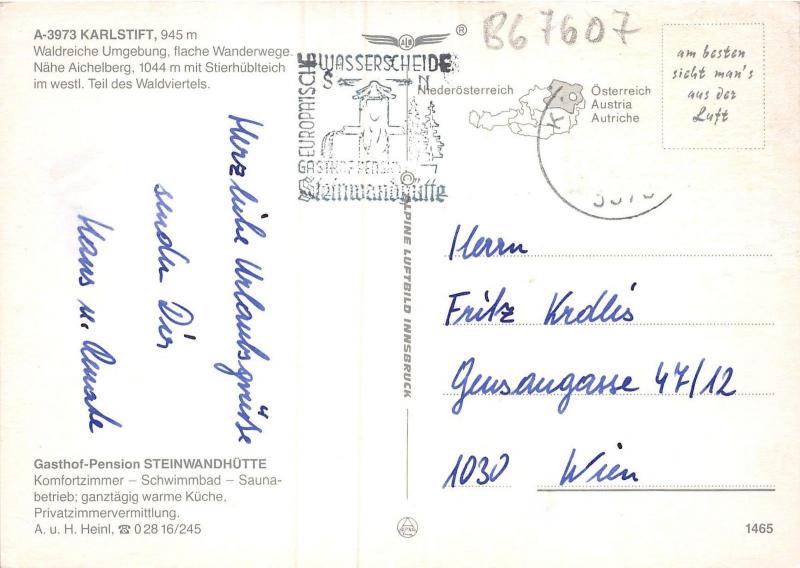 A-3973 KARLSTIFT, 945 m
Waldreiche Umgebung, flache Wanderwege.
Nähe Aichelberg, 1044 m mit Stierhüblteich
im westl. Teil des Waldviertels.
Herzliche Urlaubsgrüße
senden Dir
Hans u. Renate
Gasthof-Pension STEINWANDHÜTTE
Komfortzimmer – Schwimmbad – Sauna-
betrieb; ganztägig warme Küche,
Privatzimmervermittlung.
A. u. H. Heinl, ☎ 0 28 16/245
EUROPÄISCHE
WASSERSCHEIDE
S N
GASTHOF PENSION
Steinwandhütte
ALPINE LUFTBILD INNSBRUCK
®
B67607
Niederösterreich
Österreich
Austria
Autriche
am besten
sieht man's
aus der
Luft
Herrn
Fritz
Gensangasse 47/12
1030 Wien
1465